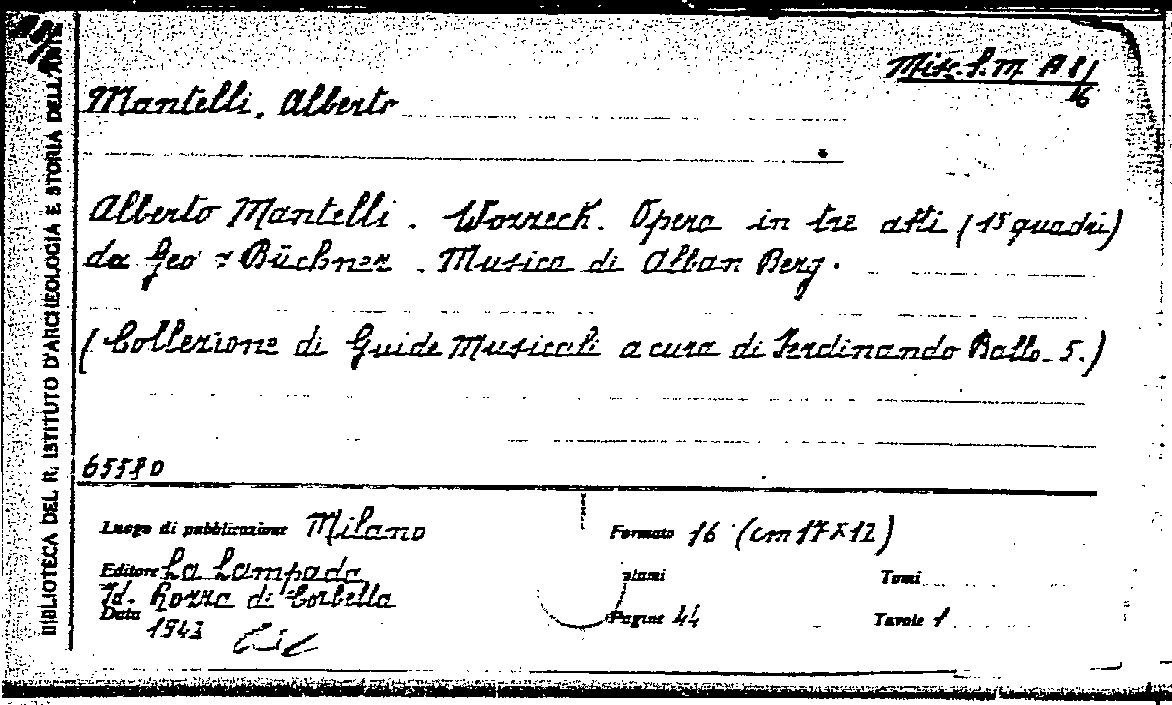 BIBLIOTECA DEL R. ISTITUTO D'ARCHEOLOGIA E STORIA DELL'ARTE
Misc. S.M. A 81/16
Mantelli, Alberto
Alberto Mantelli. Wozzeck. Opera in tre atti (15 quadri)
da Geo = Büchner. Musica di Alban Berg.
(Collezione di Guide Musicali a cura di Ferdinando Ballo. 5.)
65580
Luogo di pubblicazione Milano
Formato 16 (cm 17x12)
Editore La Lampada
Tomi
Ed. Rozza di Corbella
Data 1943
Pagine 44
Tavole 1